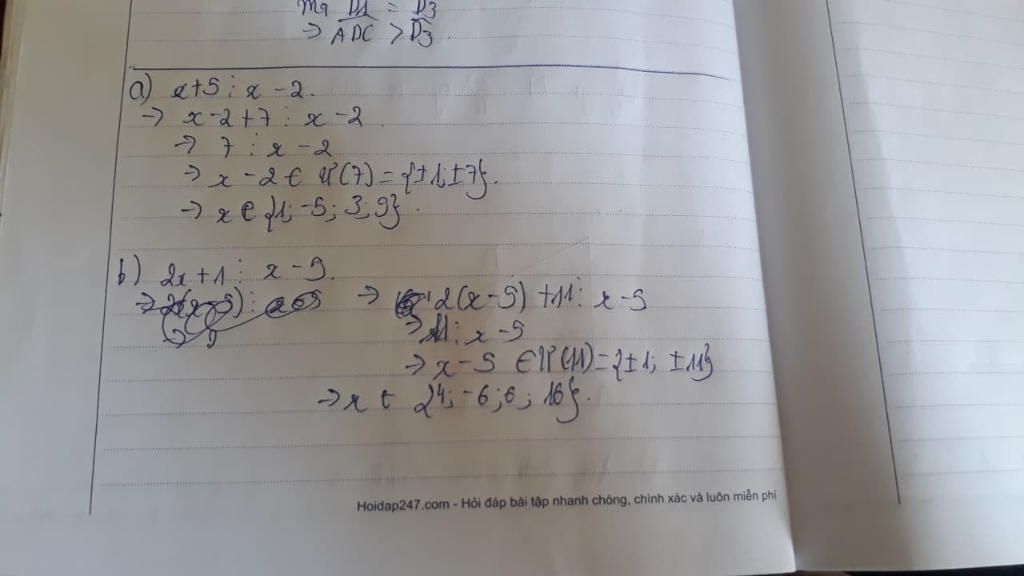 Mà D1 = D3
→ ADC > D3.
a) x+5 ⋮ x-2.
→ x-2+7 ⋮ x-2
→ 7 ⋮ x-2
→ x-2 ∈ Ư(7) = {±1; ±7}.
→ x ∈ {1; -5; 3; 9}.
b) 2x+1 ⋮ x-5.
→ 2(x-5) +11 ⋮ x-5
→ 11 ⋮ x-5
→ x-5 ∈ Ư(11) = {±1; ±11}
→ x ∈ {4; -6; 6; 16}.
Hoidap247.com - Hỏi đáp bài tập nhanh chóng, chính xác và luôn miễn phí